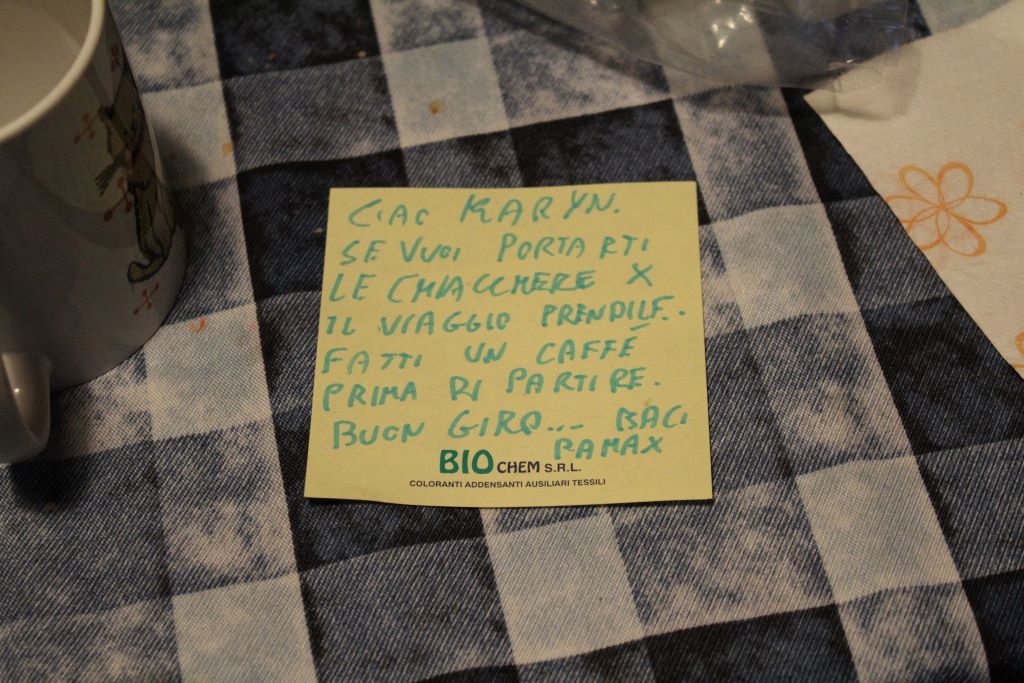 CIAO KARYN.
SE VUOI PORTARTI
LE CHIACCHERE X
IL VIAGGIO PRENDILE..
FATTI UN CAFFÉ
PRIMA DI PARTIRE.
BUON GIRO... BACI
DAMAX
BIO CHEM S.R.L.
COLORANTI ADDENSANTI AUSILIARI TESSILI